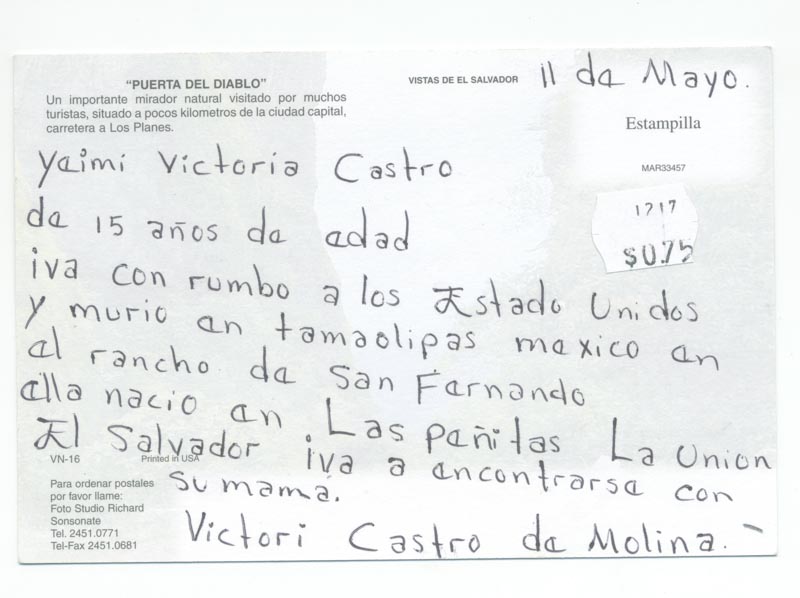 "PUERTA DEL DIABLO"
Un importante mirador natural visitado por muchos
turistas, situado a pocos kilometros de la ciudad capital,
carretera a Los Planes.
VISTAS DE EL SALVADOR
11 de Mayo.
Estampilla
MAR33457
1217
$0.75
Yaimi Victoria Castro
de 15 años de edad
iva con rumbo a los Estado Unidos
y murio en tamaolipas mexico en
el rancho de San Fernando
ella nacio en Las pañitas La Union
El Salvador iva a encontrarse con
su mama.
Victori Castro de Molina.
VN-16
Printed in USA
Para ordenar postales
por favor llame:
Foto Studio Richard
Sonsonate
Tel. 2451.0771
Tel-Fax 2451.0681